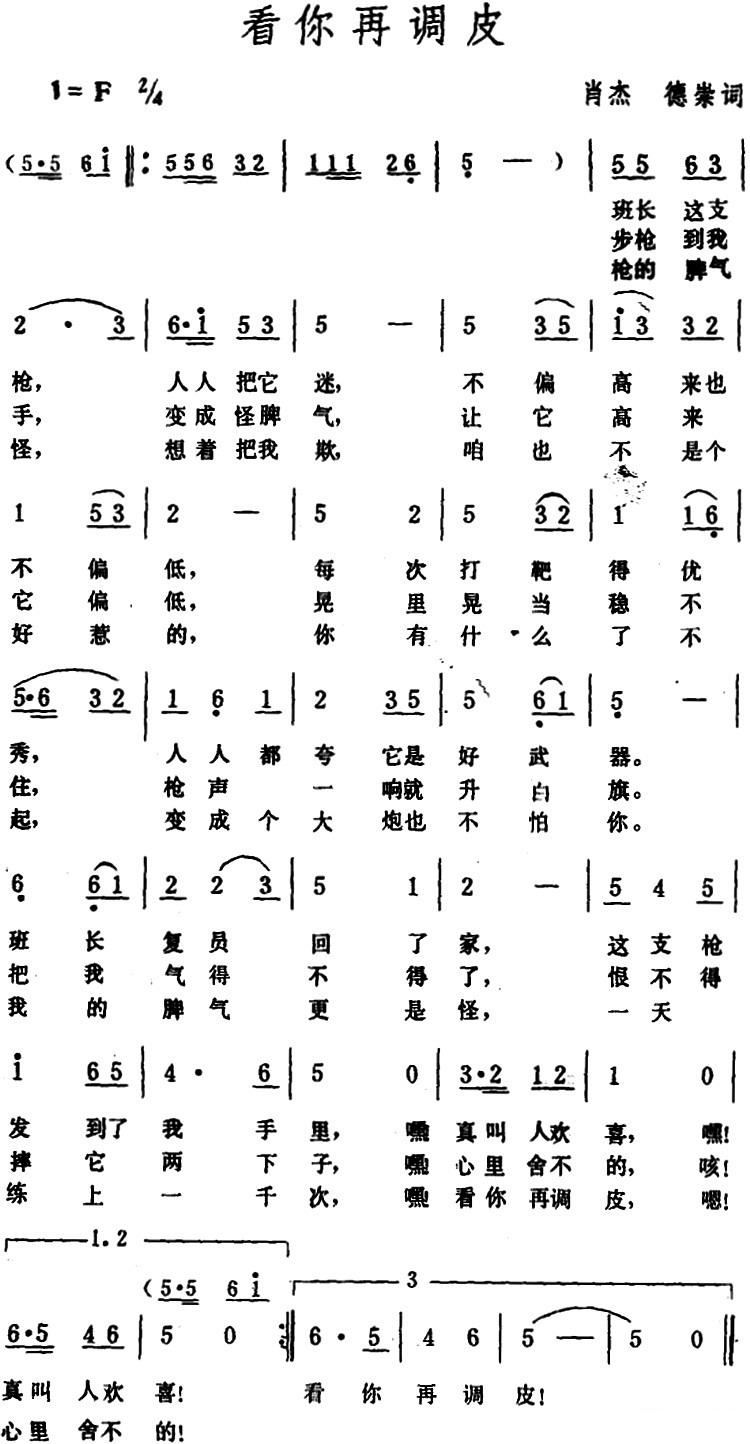 看你再调皮
1=F 2/4 肖杰 德崇词
(5·5 6i ‖: 556 32 | 111 26 | 5 — ) | 55 63
班长 这支
步枪 到我
枪的 脾气
2 · 3 | 6·i 53 | 5 — | 5 35 | i3 32 |
枪, 人人 把它 迷, 不 偏 高 来也
手, 变成 怪脾 气, 让 它 高 来
怪, 想着 把我 欺, 咱 也 不 是个
1 53 | 2 — | 5 2 | 5 32 | 1 16 |
不 偏 低, 每 次 打 靶 得 优
它 偏 低, 晃 里 晃 当 稳 不
好 惹 的, 你 有 什 么 了 不
5·6 32 | 1 6 1 | 2 35 | 5 61 | 5 — |
秀, 人 人 都 夸 它是 好 武 器。
住, 枪 声 一 响就 升 白 旗。
起, 变 成 个 大 炮也 不 怕 你。
6 61 | 2 2 3 | 5 1 | 2 — | 5 4 5 |
班 长 复 员 回 了 家, 这 支 枪
把 我 气 得 不 得 了, 恨 不 得
我 的 脾 气 更 是 怪, 一 天
i 65 | 4 · 6 | 5 0 | 3·2 12 | 1 0 |
发 到了 我 手 里, 嘿 真叫 人欢 喜, 嘿!
摔 它 两 下 子, 嘿 心里 舍不 的, 咳!
练 上 一 千 次, 嘿 看你 再调 皮, 嗯!
1.2
(5·5 6i 3
6·5 46 | 5 0 :‖ 6 · 5 | 4 6 | 5 — | 5 0 ‖
真叫 人欢 喜! 看 你 再 调 皮!
心里 舍不 的!